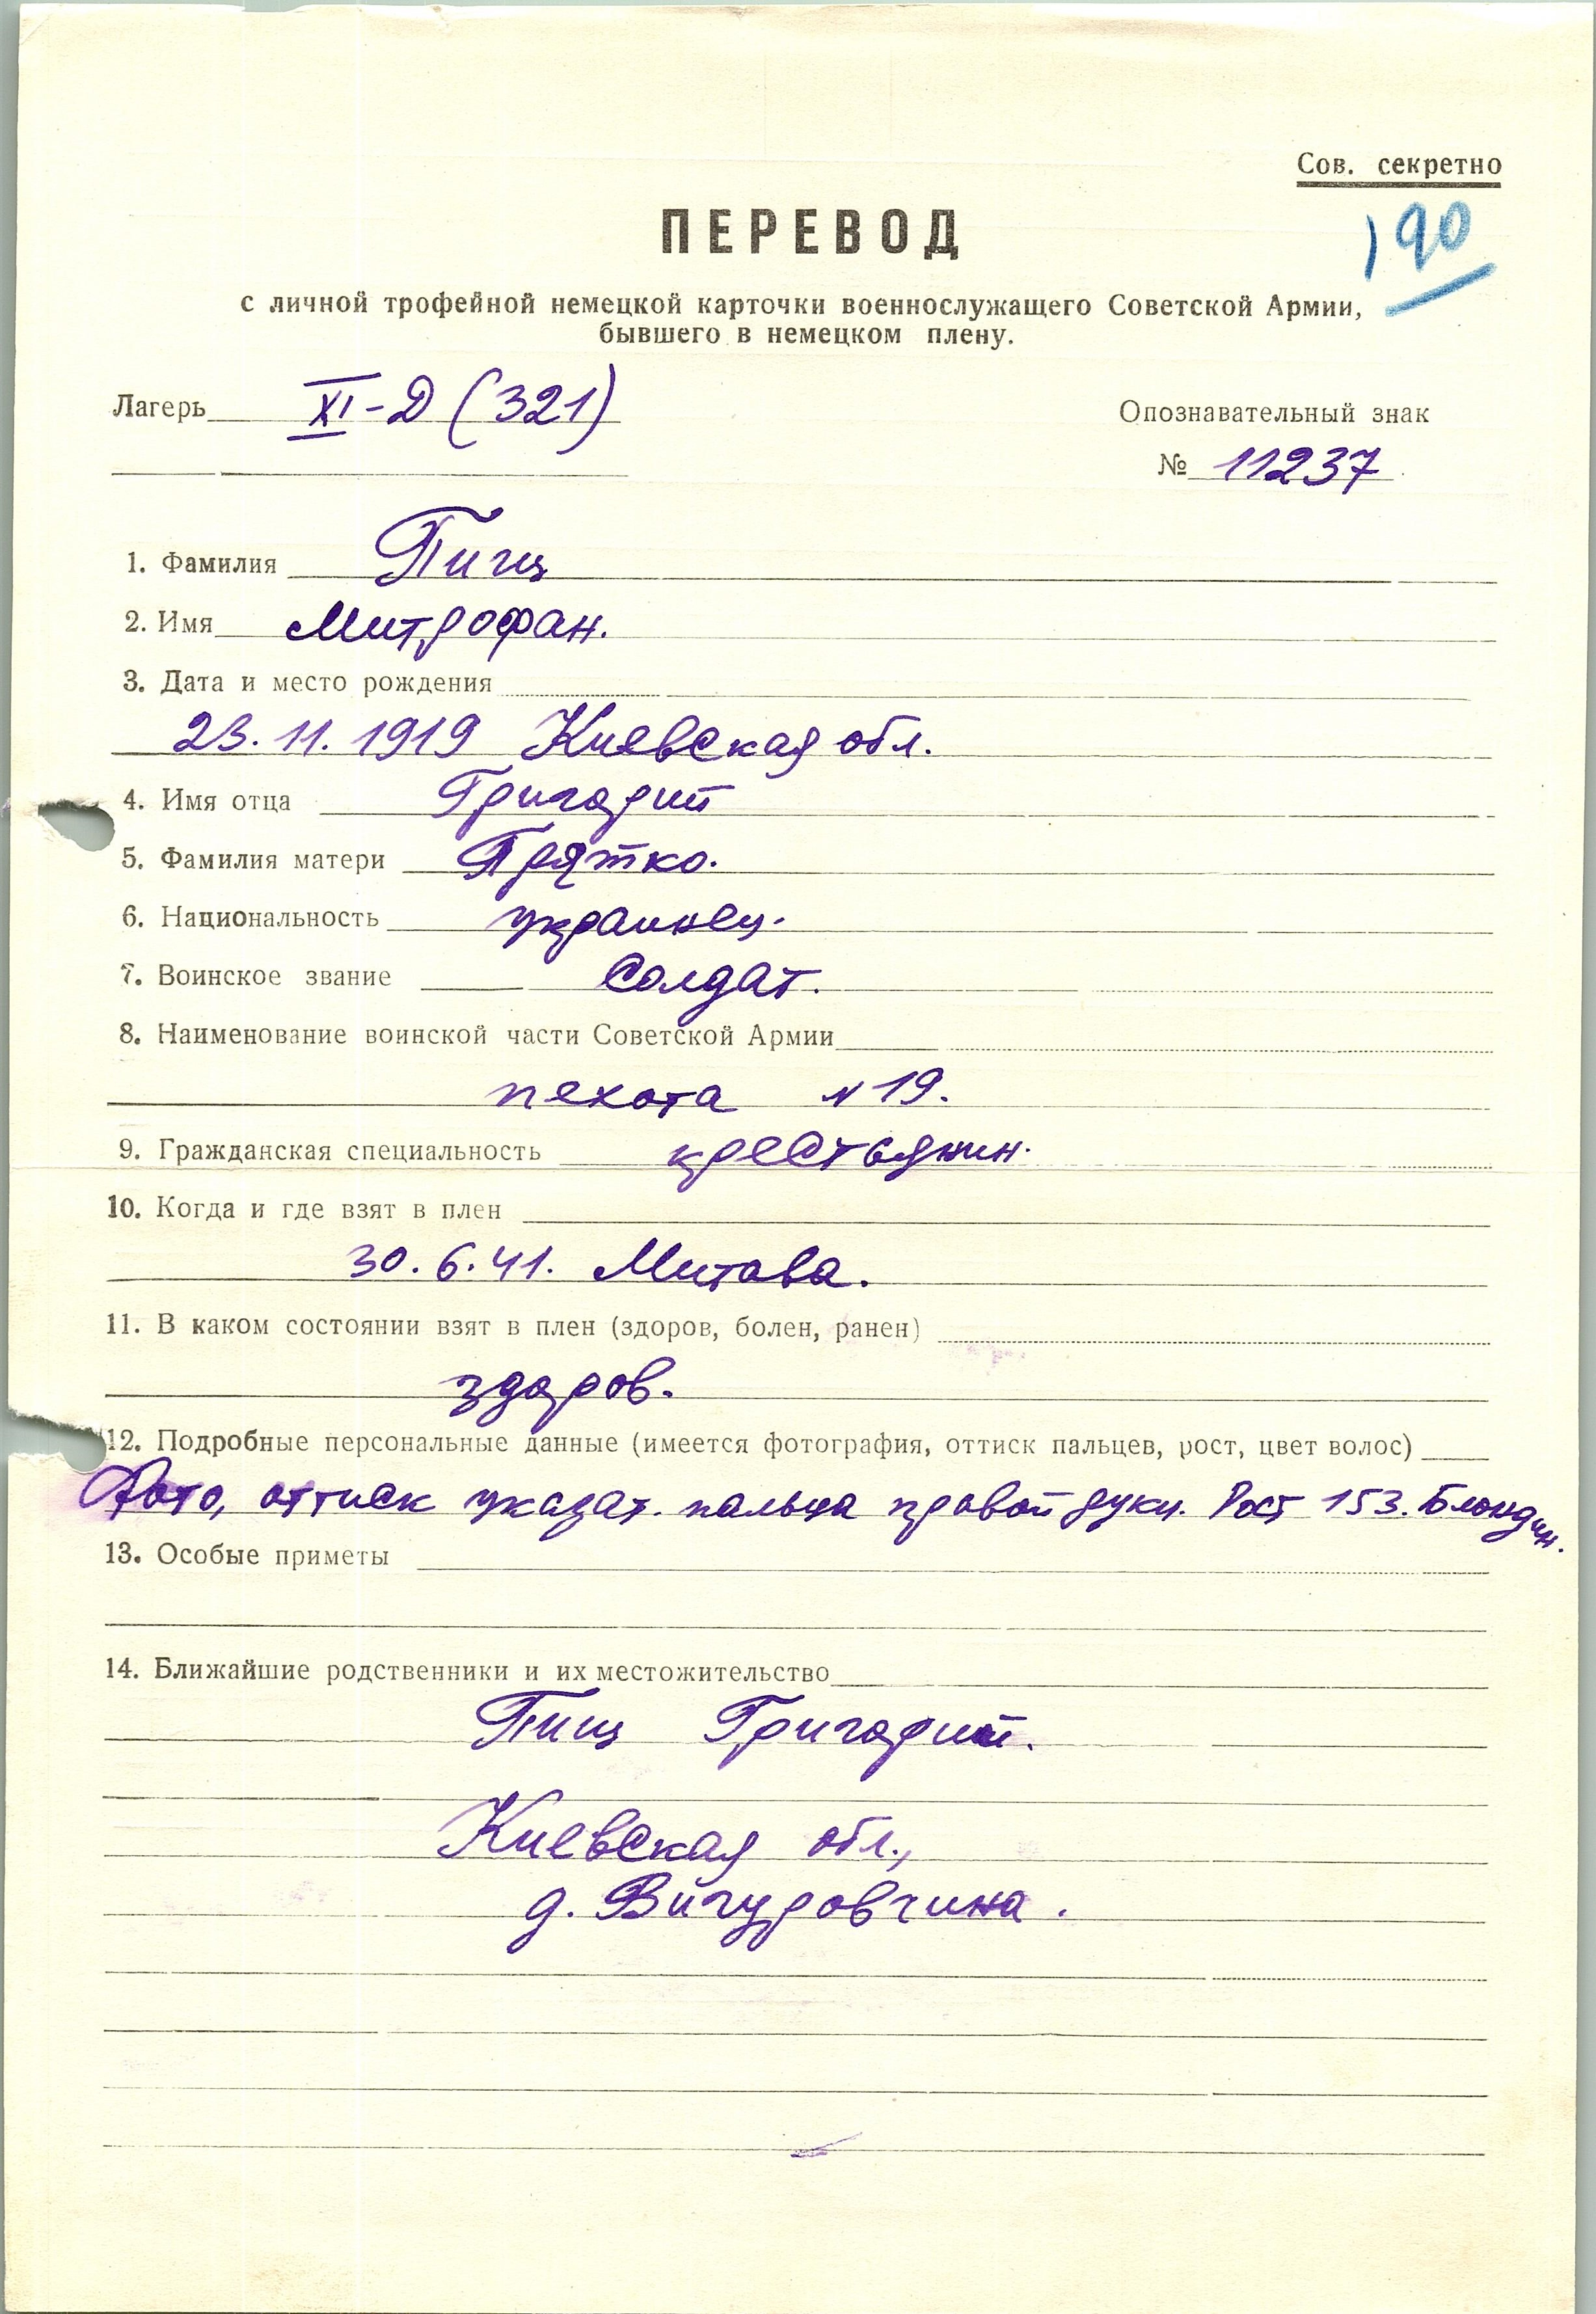 Сов. секретно
190
ПЕРЕВОД
с личной трофейной немецкой карточки военнослужащего Советской Армии,
бывшего в немецком плену.
Лагерь XI-Д (321)
Опознавательный знак
№ 11237
1. Фамилия
2. Имя Митрофан.
3. Дата и место рождения
23.11.1919 Киевская обл.
4. Имя отца Григорий
5. Фамилия матери Прятко.
6. Национальность украинец.
7. Воинское звание Солдат.
8. Наименование воинской части Советской Армии
пехота N 19.
9. Гражданская специальность крестьянин.
10. Когда и где взят в плен
30.6.41. Митава.
11. В каком состоянии взят в плен (здоров, болен, ранен)
здоров.
12. Подробные персональные данные (имеется фотография, оттиск пальцев, рост, цвет волос)
Фото, оттиск указат. пальца правой руки. Рост 153. Блондин.
13. Особые приметы
14. Ближайшие родственники и их местожительство
Пищ Григорий.
Киевская обл.,
д. Вигуровчина.